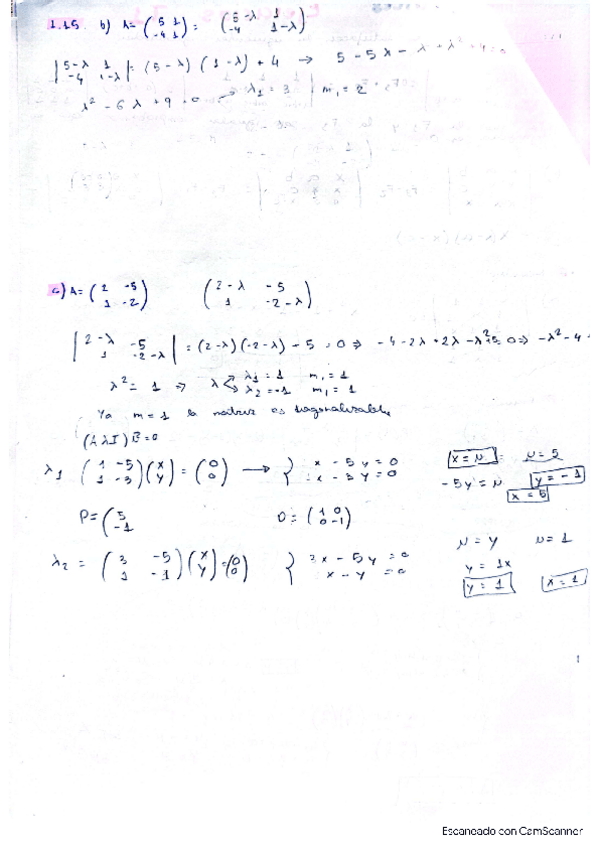 1.15. b) A = (5 1 / -4 1) = (5-λ 1 / -4 1-λ)
|5-λ 1 / -4 1-λ| = (5-λ)(1-λ) + 4 → 5 - 5λ - λ + λ² + 4 = 0
λ² - 6λ + 9 = 0 → λ₁ = 3 | m₁ = 2
c) A = (2 -5 / 1 -2) (2-λ -5 / 1 -2-λ)
|2-λ -5 / 1 -2-λ| = (2-λ)(-2-λ) - 5 = 0 ⇒ -4 - 2λ + 2λ - λ² = 0 ⇒ -λ² - 4 +
λ² = 1 ⇒ λ < λ₁ = 1 m₁ = 1 / λ₂ = -1 m₁ = 1
Ya m = 1 la matriz es diagonalizable
(A λ I) = 0
λ₁ (1 -5 / 1 -3)(x / y) = (0 / 0) → } x - 5y = 0 / x - 3y = 0
x = μ μ = 5
-5y = μ y = -1
x = 5
P = (5 / -1 D = (1 0 / 0 -1)
λ₂ = (3 -5 / 1 -1)(x / y) = (0 / 0) } 3x - 5y = 0 / x - y = 0
μ = y μ = 1
y = 1x
y = 1 x = 1
1
Escaneado con CamScanner